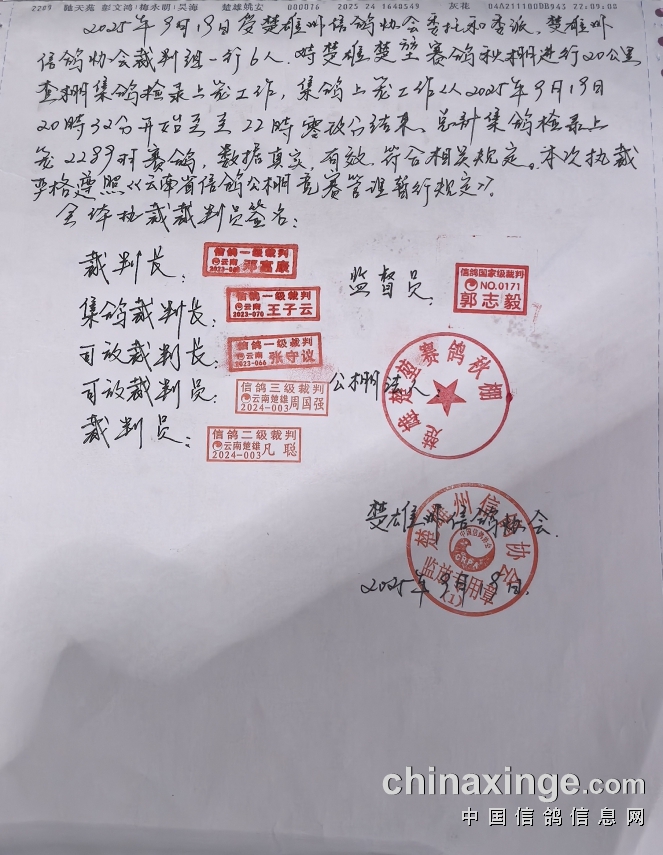 2289 驰天苑 彭文鸿/梅永朝/吴海 楚雄姚安 000076 2025 24 1640549 灰花 04A211100DB943 22:09:00
2025年9月19日受楚雄州信鸽协会委托和委派，楚雄州
信鸽协会裁判组一行6人，对楚雄楚堃赛鸽秋棚进行20公里
查棚集鸽检录上笼工作，集鸽上笼工作从2025年9月19日
20時32分开始至 22時零 分结束。总計集鸽检录上
笼2289羽赛鸽，数据真实，有效，符合相关规定。本次执裁
严格遵照《云南省信鸽公棚竞赛管理暂行规定》。
全体执裁裁判员签名：
裁判长：
信鸽一级裁判
云南
2023-0
邓富康
监督员：
信鸽国家级裁判
NO.0171
郭志毅
集鸽裁判长：
信鸽一级裁判
云南
2023-070
王子云
司放裁判长：
信鸽一级裁判
云南
2023-066
张守议
司放裁判员：
信鸽三级裁判
云南楚雄
2024-003
周国强
公棚法人
楚雄楚堃赛鸽秋棚
裁判员：
信鸽二级裁判
云南楚雄
2024-003
凡聪
楚雄州信鸽协会
楚雄州信鸽协会
中国信鸽协会
CRPA
监放专用章
(1)
2025年9月19日
chinaxinge.com
中国信鸽信息网